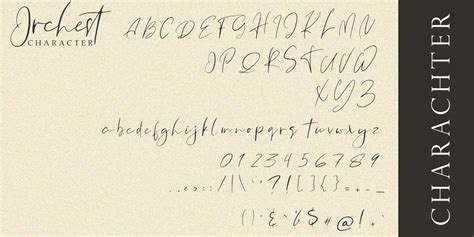 Orchest
CHARACTER
ABCDEFGHIJKLMN
OPQRSTUVW
XYZ
abcdefghijklmnopqrstuvwxyz
0123456789
CHARACHTER